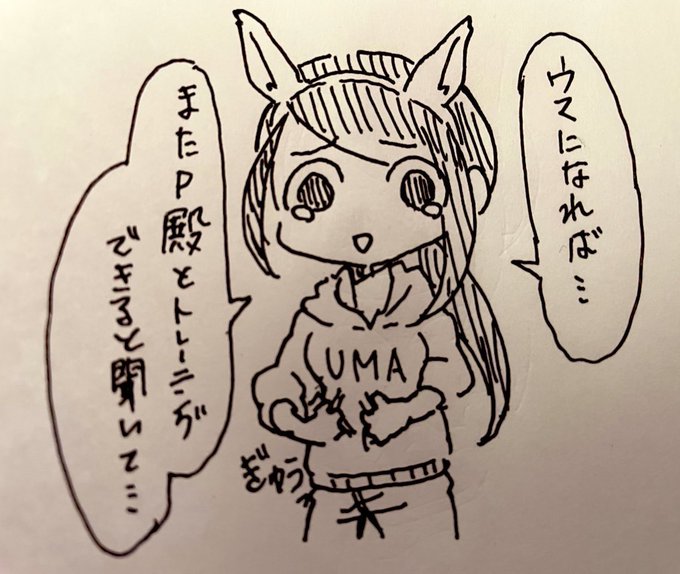 ウマになれば…
またP殿とトレーニング
できると聞いて…
UMA
ぎゅう